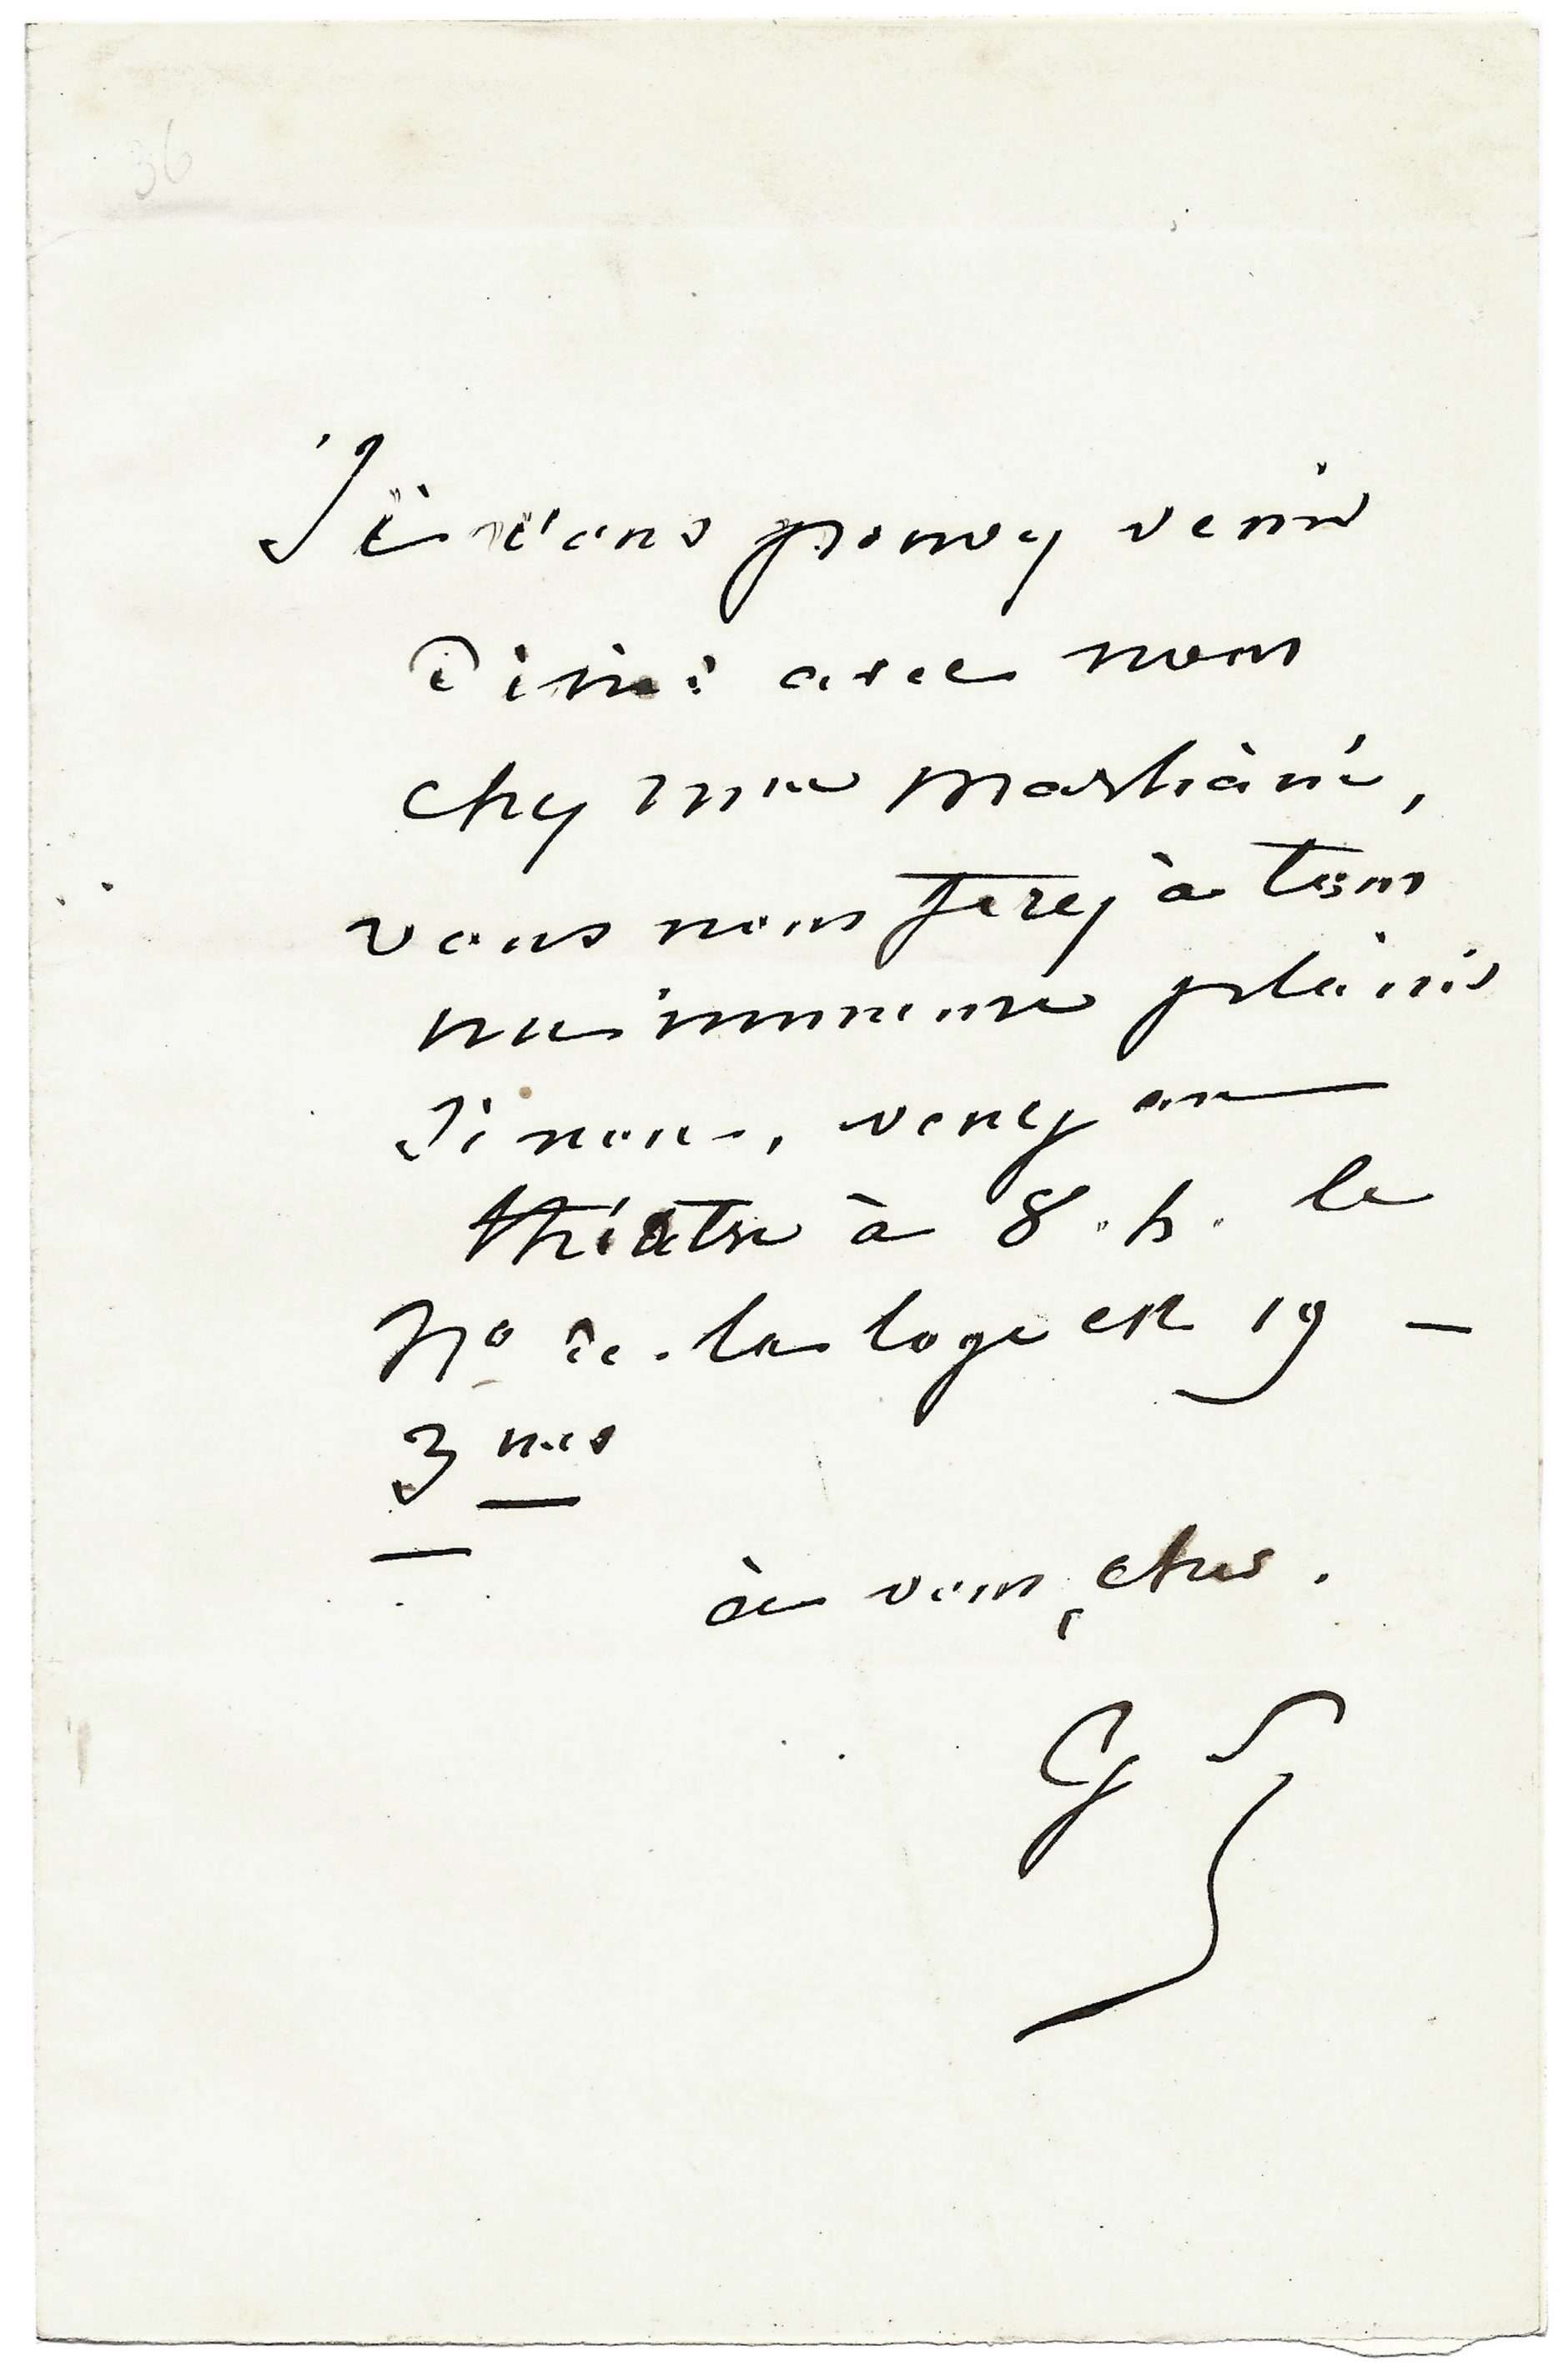 36
Si vous pouvez venir
diner avec nous
chez Mme Martiane,
vous nous ferez à tous
un immense plaisir
Sinon, venez au
théâtre à 8. h. le
No de la loge est 19 —
3mes
à vous, cher.
G S